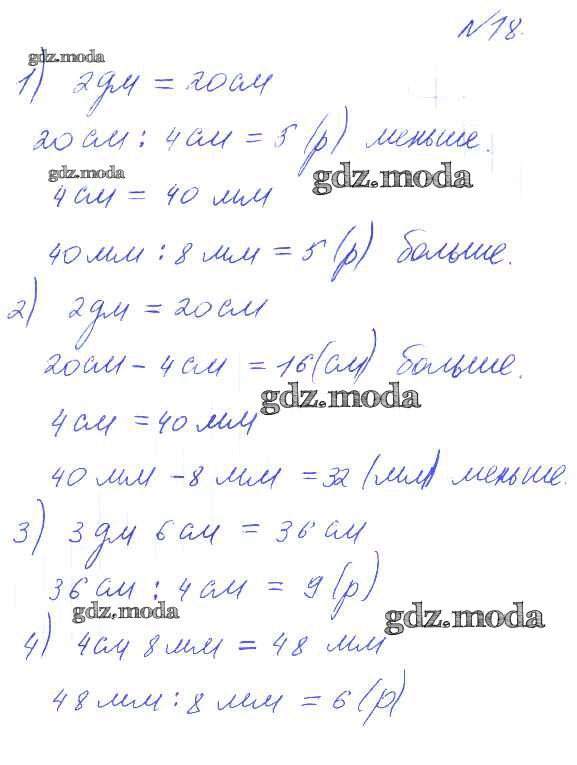 №18.
gdz.moda
1) 2дм = 20см
20см : 4см = 5 (р) меньше.
gdz.moda
gdz.moda
4см = 40 мм
40мм : 8 мм = 5 (р) больше.
2) 2дм = 20см
20см - 4см = 16 (см) больше.
gdz.moda
4см = 40 мм
40 мм - 8 мм = 32 (мм) меньше.
3) 3 дм 6 см = 36 см
36 см : 4 см = 9 (р)
gdz.moda
gdz.moda
4) 4см 8мм = 48 мм
48 мм : 8 мм = 6 (р)